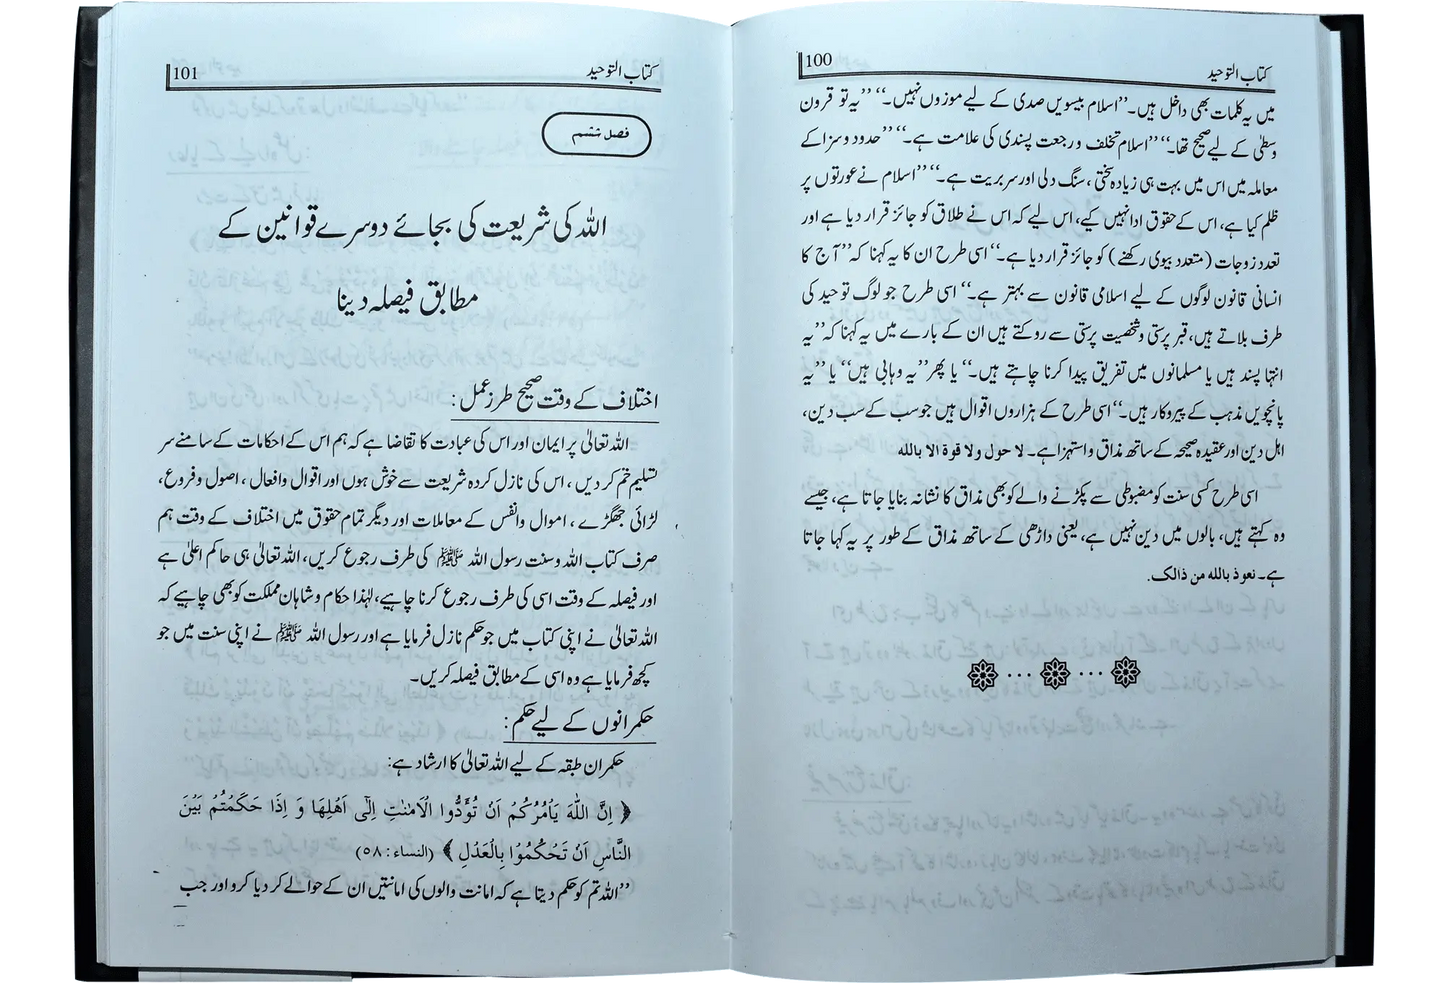 100
کتاب التوحید
میں یہ کلمات بھی داخل ہیں۔’’اسلام بیسویں صدی کے لیے موزوں نہیں۔‘‘ ’’یہ تو قرون
وسطٰی کے لیے صحیح تھا۔‘‘ ’’اسلام تخلف و رجعت پسندی کی علامت ہے۔‘‘ ’’حدود و سزا کے
معاملہ میں اس میں بہت ہی زیادہ سختی ، سنگ دلی اور سربریت ہے۔‘‘ ’’اسلام نے عورتوں پر
ظلم کیا ہے، اس کے حقوق ادا نہیں کیے، اس لیے کہ اس نے طلاق کو جائز قرار دیا ہے اور
تعدد زوجات (متعدد بیوی رکھنے) کو جائز قرار دیا ہے۔‘‘ اسی طرح ان کا یہ کہنا کہ ’’آج کا
انسانی قانون لوگوں کے لیے اسلامی قانون سے بہتر ہے۔‘‘ اسی طرح جو لوگ توحید کی
طرف بلاتے ہیں، قبر پرستی و شخصیت پرستی سے روکتے ہیں ان کے بارے میں یہ کہنا کہ ’’یہ
انتہا پسند ہیں یا مسلمانوں میں تفریق پیدا کرنا چاہتے ہیں۔‘‘ یا پھر ’’یہ وہابی ہیں‘‘ یا ’’یہ
پانچویں مذہب کے پیروکار ہیں۔‘‘ اسی طرح کے ہزاروں اقوال ہیں جو سب کے سب دین،
اہل دین اور عقیدہ صحیحہ کے ساتھ مذاق و استہزا ہے۔ لا حول ولا قوة الا بالله
اسی طرح کسی سنت کو مضبوطی سے پکڑنے والے کو بھی مذاق کا نشانہ بنایا جاتا ہے، جیسے
وہ کہتے ہیں، بالوں میں دین نہیں ہے، یعنی داڑھی کے ساتھ مذاق کے طور پر یہ کہا جاتا
ہے۔ نعوذ بالله من ذالک.
101
کتاب التوحید
فصل ششم
اللہ کی شریعت کی بجائے دوسرے قوانین کے
مطابق فیصلہ دینا
اختلاف کے وقت صحیح طرز عمل:
اللہ تعالیٰ پر ایمان اور اس کی عبادت کا تقاضا ہے کہ ہم اس کے احکامات کے سامنے سر
تسلیم خم کر دیں ، اس کی نازل کردہ شریعت سے خوش ہوں اور اقوال و افعال ، اصول و فروع،
لڑائی جھگڑے ، اموال و انفس کے معاملات اور دیگر تمام حقوق میں اختلاف کے وقت ہم
صرف کتاب اللہ و سنت رسول اللہ ﷺ کی طرف رجوع کریں، اللہ تعالیٰ ہی حاکم اعلیٰ ہے
اور فیصلہ کے وقت اسی کی طرف رجوع کرنا چاہیے، لہٰذا حکام و شاہان مملکت کو بھی چاہیے کہ
اللہ تعالیٰ نے اپنی کتاب میں جو حکم نازل فرمایا ہے اور رسول اللہ ﷺ نے اپنی سنت میں جو
کچھ فرمایا ہے وہ اسی کے مطابق فیصلہ کریں۔
حکمرانوں کے لیے حکم:
حکمران طبقہ کے لیے اللہ تعالیٰ کا ارشاد ہے:
﴿ اِنَّ اللّٰهَ يَاْمُرُكُمْ اَنْ تُؤَدُّوا الْاَمٰنٰتِ اِلٰٓى اَهْلِهَا وَ اِذَا حَكَمْتُمْ بَيْنَ
النَّاسِ اَنْ تَحْكُمُوْا بِالْعَدْلِ ﴾ (النساء: ٥٨)
’’اللہ تم کو حکم دیتا ہے کہ امانت والوں کی امانتیں ان کے حوالے کر دیا کرو اور جب